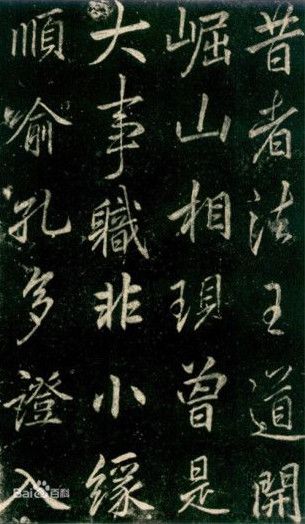 昔者法王道開
崛山相現曾是
大事職非小緣
順喻孔多證入
Bai百科